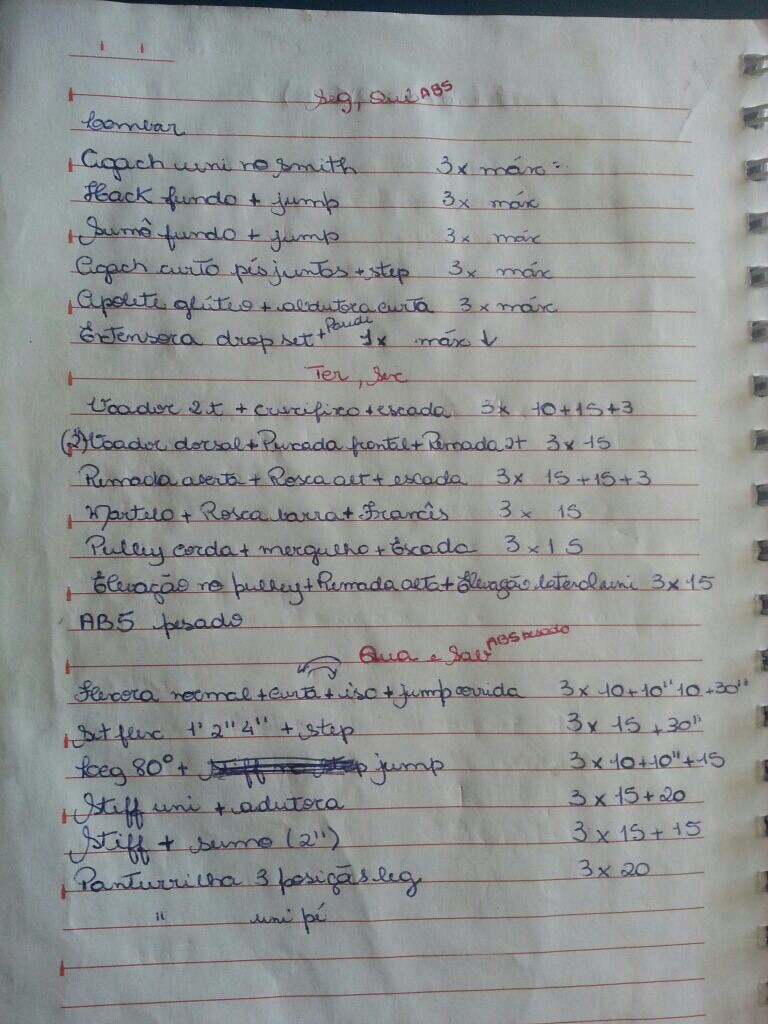 Seg, Qui ABS
Lombar
Agach uni no smith 3x máx
Hack fundo + jump 3x máx
Sumô fundo + jump 3x máx
Agach curto pés juntos + step 3x máx
Apolete glúteo + abdutora curta 3x máx
Extensora drop set + 1x máx ↓
Ter, Sex
Voador 2t + crucifixo + escada 3x 10+15+3
Voador dorsal + Puxada frontal + Remada 2t 3x15
Remada aberta + Rosca alt + escada 3x 15+15+3
Martelo + Rosca barra + Francês 3x 15
Pulley corda + mergulho + Escada 3x15
Elevação no pulley + Remada alta + Elevação lateral uni 3x15
ABS pesado
Qua e Sab ABS pesado
Flexora normal + curta + iso + jump corrida 3x10+10"10+30"
Set flex 1' 2" 4" + step 3x 15 +30"
Leg 80° + jump 3x10+10"+15
Stiff uni + adutora 3x15+20
Stiff + sumo (2") 3x15+15
Panturrilha 3 posiçãs leg 3x20
" uni pé